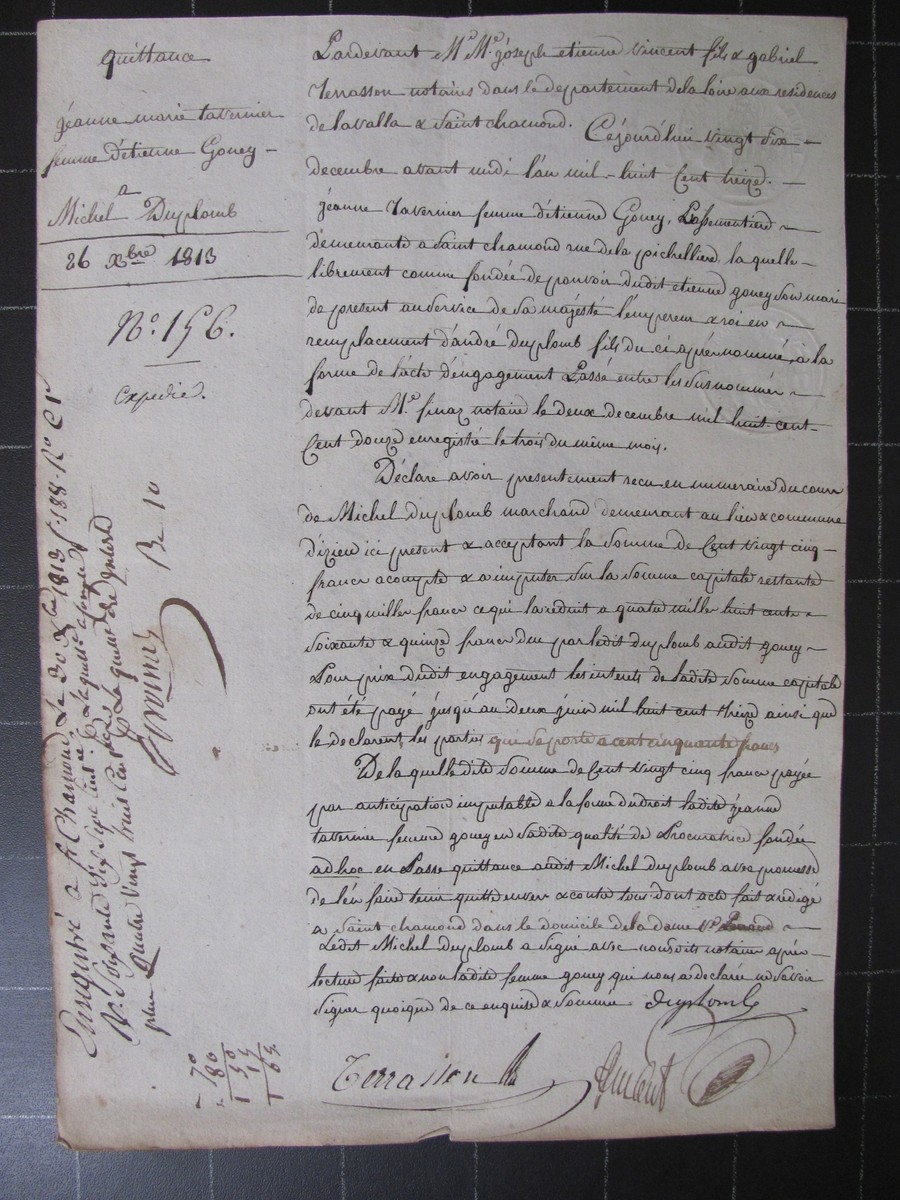 quittance
jéanne marie tavernier
femme d'étienne Goney
a
Michel Duplomb
26 Xbre 1813
No. 156.
Expedié.
Pardevant Me. Me. joseph etienne vincent fils & gabriel
Terrasson notaires dans le departement dela loire aux residences
de lavalla & Saint chamond. Cejourd'hui vingt six
decembre avant midi l'an mil huit Cent treize.
jéanne Tavernier femme d'étienne Goney, Passementiere
démeurante a Saint chamond rue dela pichelliere la quelle
librement comme fondée de pouvoir dudit etienne goney Son mari
de present au Service de Sa majésté l'empereur & roi en
remplacement d'andré duplomb fils du ci après nommé, a la
forme de l'acte d'engagement Passé entre les Susnommés
devant Me. finaz notaire le deux decembre mil huit cent
Cent douze enregistré le trois du même mois.
Déclare avoir presentement recu en numeraire du cours
de Michel duplomb marchand demeurant au lieu & commune
d'izieu ici present & acceptant la Somme de Cent vingt cinq
francs acompte & a imputer Sur la Somme capitale restante
de cinq milles francs ce qui la réduit a quatre milles huit cents
Soixante & quinze francs due par ledit duplomb audit goney
Pour prix dudit engagement les interets de ladite Somme capitale
ont été payé jusqu'au deux juin mil huit cent treize ainsi que
le declarent les parties qui se porte a cent cinquante francs
De la quelle dite Somme de Cent vingt cinq francs payée
par anticipation imputable a la forme du droit ladite jéanne
tavernier femme goney en Sadite qualité de Procuratrice fondée
ad hoc en Passe quittance audit Michel duplomb avec promesse
de l'en faire tenir quitte envers & contre tous dont acte fait & rédigé
a Saint chamond dans le domicile de la dame ve.
Ledit Michel duplomb a Signé avec nousdits notaires après
lecture faite & non ladite femme goney qui nous a declarée ne Savoir
Signer quoique de ce enquise & Sommée. duplomb
Terrasson Vincent
Enregistré à St Chamond Le 30 Xbre 1813 fo. 188. Ro C
plus Quatre Vingt trois
70
180
1 50
15
1 65